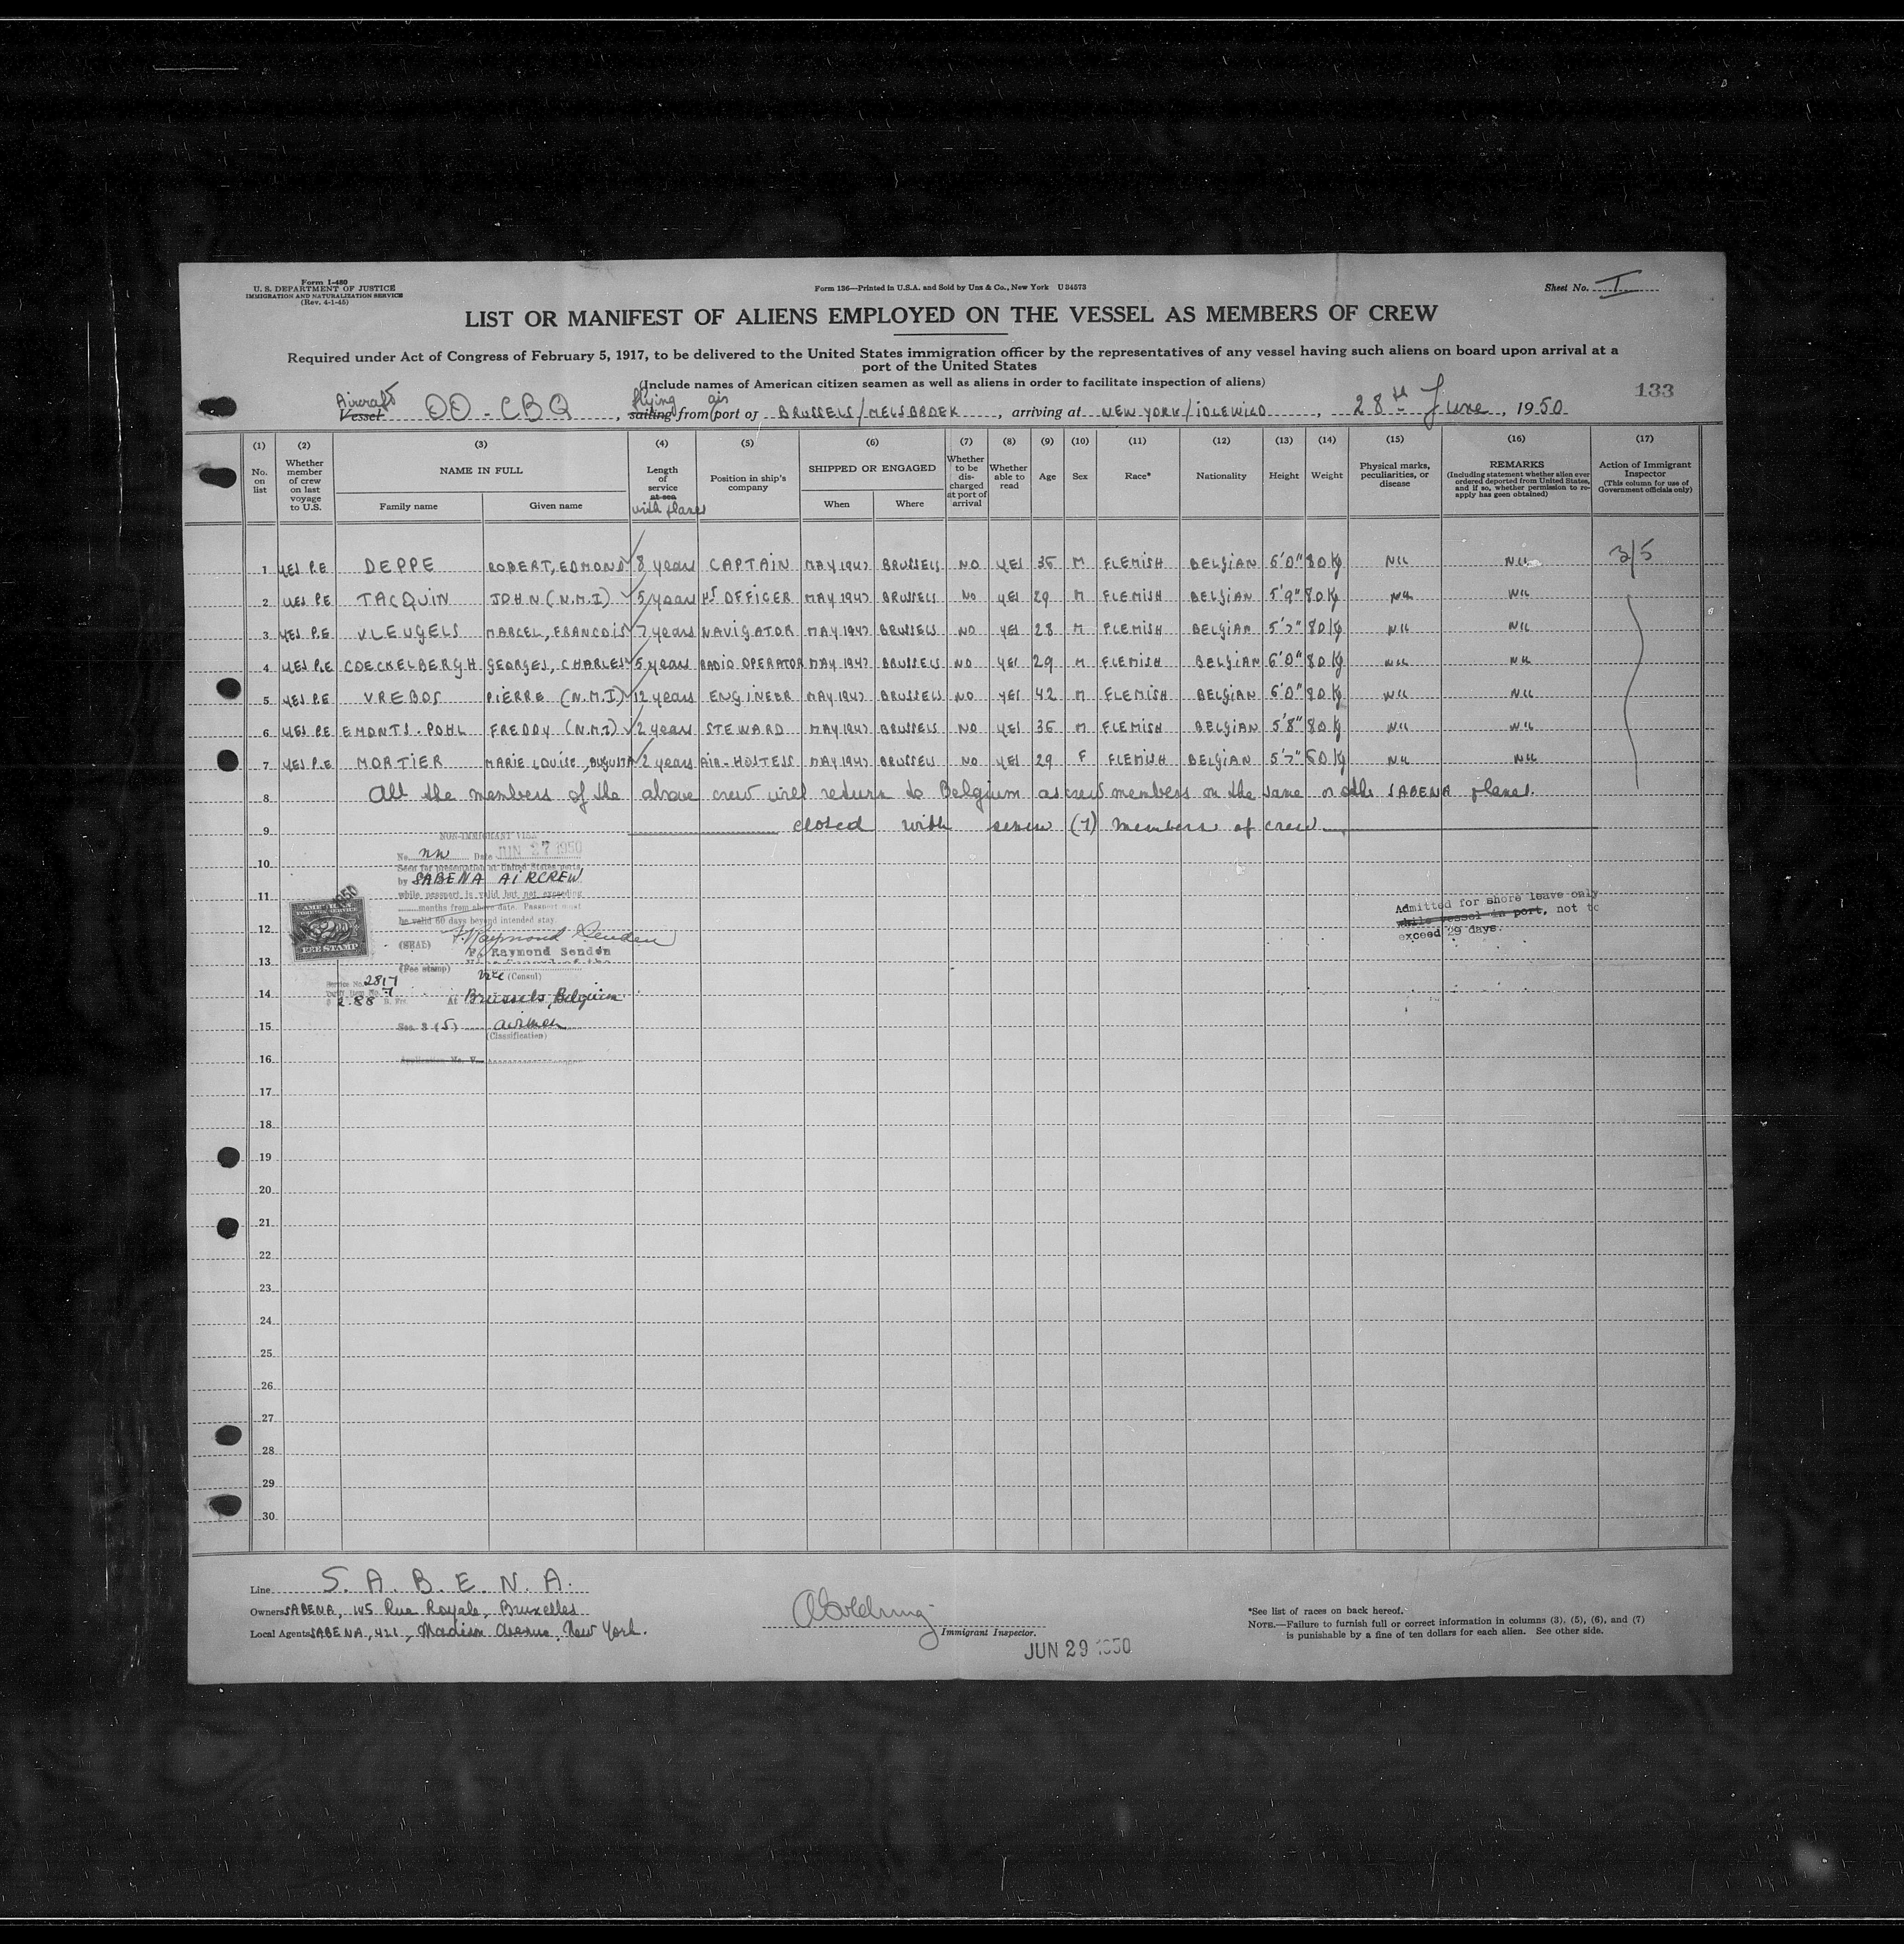 Form I-480
U. S. DEPARTMENT OF JUSTICE
IMMIGRATION AND NATURALIZATION SERVICE
(Rev. 4-1-45)
Form 136—Printed in U.S.A. and Sold by Unz & Co., New York U 34573
Sheet No. I
LIST OR MANIFEST OF ALIENS EMPLOYED ON THE VESSEL AS MEMBERS OF CREW
Required under Act of Congress of February 5, 1917, to be delivered to the United States immigration officer by the representatives of any vessel having such aliens on board upon arrival at a
port of the United States
(Include names of American citizen seamen as well as aliens in order to facilitate inspection of aliens)
133
Aircraft flying air
Vessel OO-CBQ, sailing from port of BRUSSELS/MELSBROEK, arriving at NEW YORK/IDLEWILD, 28th June, 1950
(1) (2) (3) (4) (5) (6) (7) (8) (9) (10) (11) (12) (13) (14) (15) (16) (17)
No. on list
Whether member of crew on last voyage to U.S.
NAME IN FULL
Family name
Given name
Length of service at sea
with planes
Position in ship's company
SHIPPED OR ENGAGED
When
Where
Whether to be discharged at port of arrival
Whether able to read
Age
Sex
Race*
Nationality
Height
Weight
Physical marks, peculiarities, or disease
REMARKS
(Including statement whether alien ever ordered deported from United States, and if so, whether permission to reapply has been obtained)
Action of Immigrant Inspector
(This column for use of Government officials only)
1 YES P.E DEPPE ROBERT, EDMOND 8 years CAPTAIN MAY 1947 BRUSSELS NO YES 36 M FLEMISH BELGIAN 6'0" 80 Kg NIL NIL 3/5
2 YES P.E TACQUIN JOHN (N.M.I) 5 years 1st OFFICER MAY 1947 BRUSSELS NO YES 29 M FLEMISH BELGIAN 5'9" 80 Kg NIL NIL
3 YES P.E VLEUGELS MARCEL, FRANCOIS 7 years NAVIGATOR MAY 1947 BRUSSELS NO YES 28 M FLEMISH BELGIAN 5'7" 80 Kg NIL NIL
4 YES P.E COECKELBERGH GEORGES, CHARLES 5 years RADIO OPERATOR MAY 1947 BRUSSELS NO YES 29 M FLEMISH BELGIAN 6'0" 80 Kg NIL NIL
5 YES P.E VREBOS PIERRE (N.M.I) 12 years ENGINEER MAY 1947 BRUSSELS NO YES 42 M FLEMISH BELGIAN 6'0" 80 Kg NIL NIL
6 YES P.E EMONTS-POHL FREDDY (N.M.I) 2 years STEWARD MAY 1947 BRUSSELS NO YES 36 M FLEMISH BELGIAN 5'8" 80 Kg NIL NIL
7 YES P.E MORTIER MARIE LOUISE, AUGUSTA 2 years AIR-HOSTESS MAY 1947 BRUSSELS NO YES 29 F FLEMISH BELGIAN 5'7" 60 Kg NIL NIL
8 All the members of the above crew will return to Belgium as crew members on the same or other SABENA planes.
9 closed with seven (7) members of crew
NON-IMMIGRANT VISA
No. nn Date JUN 27 1950
10 Seen for presentation at United States ports
by SABENA AIRCREW
11 while passport is valid but not exceeding
months from above date. Passport must
be valid 60 days beyond intended stay.
AMERICAN FOREIGN SERVICE
FEE STAMP
12
(SEAL) F. Raymond Senden
F. Raymond Senden
13
(Fee stamp) Vice (Consul)
Service No. 2817
Tariff Item No. 7
14 2.88 At Brussels, Belgium
15 Sec. 3 (5) airmen
(Classification)
16 Application No. V
Admitted for shore leave only
while vessel in port, not to
exceed 29 days.
17
18
19
20
21
22
23
24
25
26
27
28
29
30
Line S. A. B. E. N. A.
Owners SABENA, 145 Rue Royale, Bruxelles
Local Agents SABENA, 421, Madison Avenue, New York.
Immigrant Inspector.
JUN 29 1950
*See list of races on back hereof.
NOTE.—Failure to furnish full or correct information in columns (3), (5), (6), and (7)
is punishable by a fine of ten dollars for each alien. See other side.